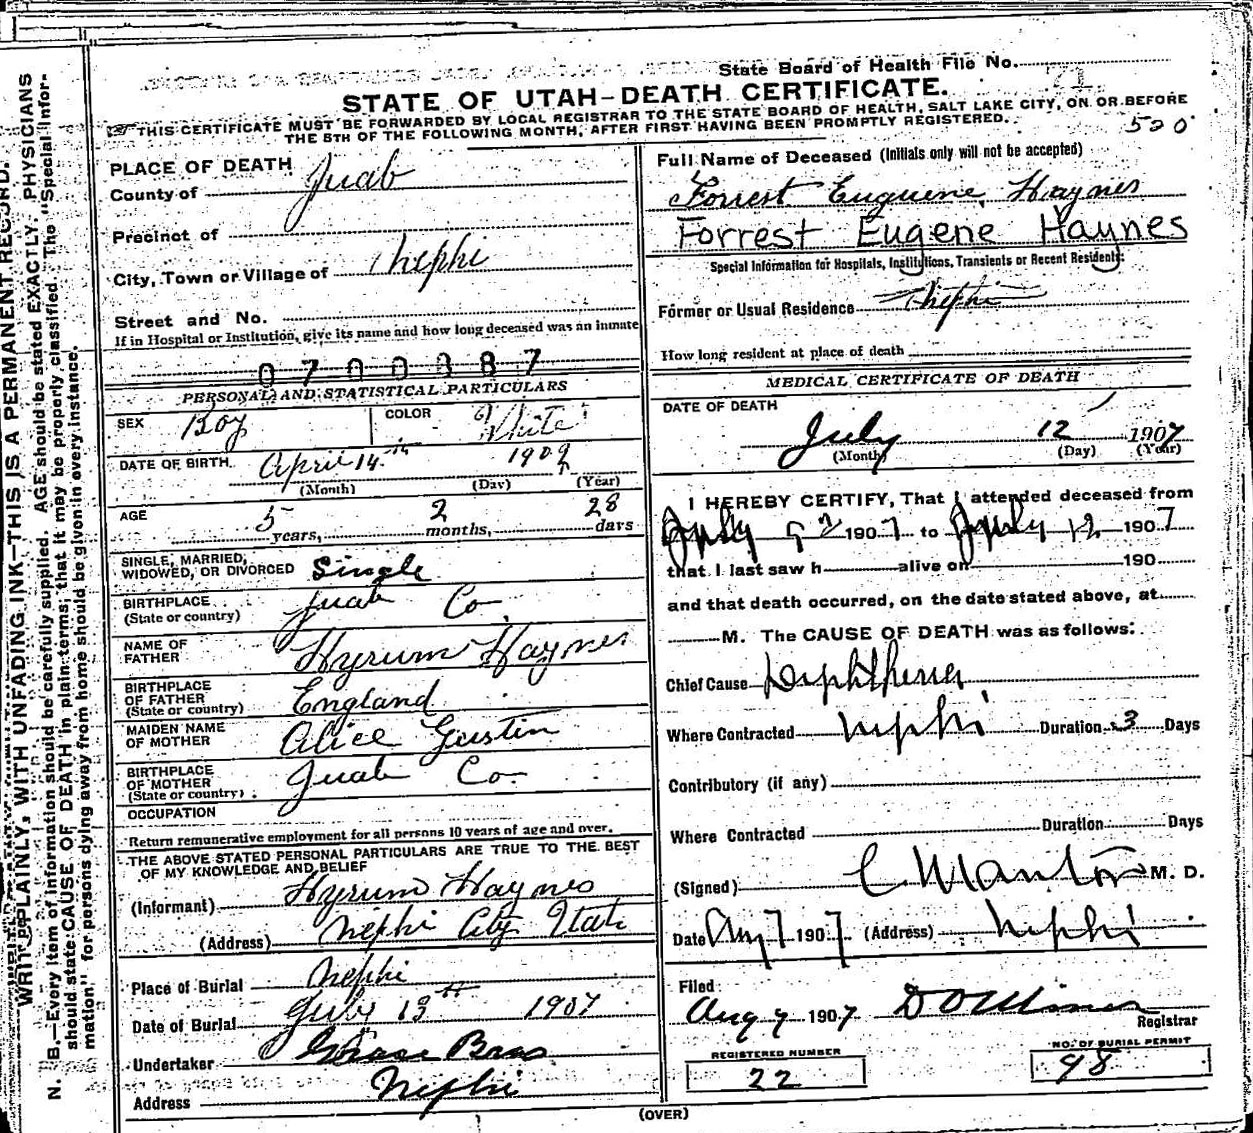 State Board of Health File No.
STATE OF UTAH-DEATH CERTIFICATE.
THIS CERTIFICATE MUST BE FORWARDED BY LOCAL REGISTRAR TO THE STATE BOARD OF HEALTH, SALT LAKE CITY, ON OR BEFORE
THE 5TH OF THE FOLLOWING MONTH, AFTER FIRST HAVING BEEN PROMPTLY REGISTERED.
520
PLACE OF DEATH
County of Juab
Precinct of
City, Town or Village of Nephi
Street and No.
If in Hospital or Institution, give its name and how long deceased was an inmate
PERSONAL AND STATISTICAL PARTICULARS
SEX Boy COLOR White
DATE OF BIRTH April 14th
(Month) (Day) (Year)
AGE 5 years, 2 months, 28 days
SINGLE, MARRIED,
WIDOWED, OR DIVORCED Single
BIRTHPLACE
(State or country) Juab Co
NAME OF
FATHER Hyrum Haynes
BIRTHPLACE
OF FATHER
(State or country) England
MAIDEN NAME
OF MOTHER Alice Gustin
BIRTHPLACE
OF MOTHER
(State or country) Juab Co
OCCUPATION
Return remunerative employment for all persons 10 years of age and over.
THE ABOVE STATED PERSONAL PARTICULARS ARE TRUE TO THE BEST
OF MY KNOWLEDGE AND BELIEF
(Informant) Hyrum Haynes
(Address) Nephi City Utah
Place of Burial Nephi
Date of Burial July 13th 1907
Undertaker Bros
Address Nephi
Full Name of Deceased (Initials only will not be accepted)
Forrest Euguene Haynes
Forrest Eugene Haynes
Special Information for Hospitals, Institutions, Transients or Recent Residents:
Former or Usual Residence Nephi
How long resident at place of death
MEDICAL CERTIFICATE OF DEATH
DATE OF DEATH
July 12 1907
(Month) (Day) (Year)
I HEREBY CERTIFY, That I attended deceased from
July 1907 to July 12 1907
that I last saw h alive on 190
and that death occurred, on the date stated above, at
M. The CAUSE OF DEATH was as follows:
Chief Cause Diphtheria
Where Contracted Nephi Duration 3 Days
Contributory (if any)
Where Contracted Duration Days
(Signed) M. D.
Date Aug 7 1907 (Address) Nephi
Filed
Aug 7 1907
Registrar
REGISTERED NUMBER
22
NO. OF BURIAL PERMIT
98
(OVER)
WRITE PLAINLY, WITH UNFADING INK—THIS IS A PERMANENT RECORD.
N. B.—Every item of information should be carefully supplied. AGE should be stated EXACTLY. PHYSICIANS
should state CAUSE OF DEATH in plain terms, that it may be properly classified. The "Special Infor-
mation" for persons dying away from home should be given in every instance.